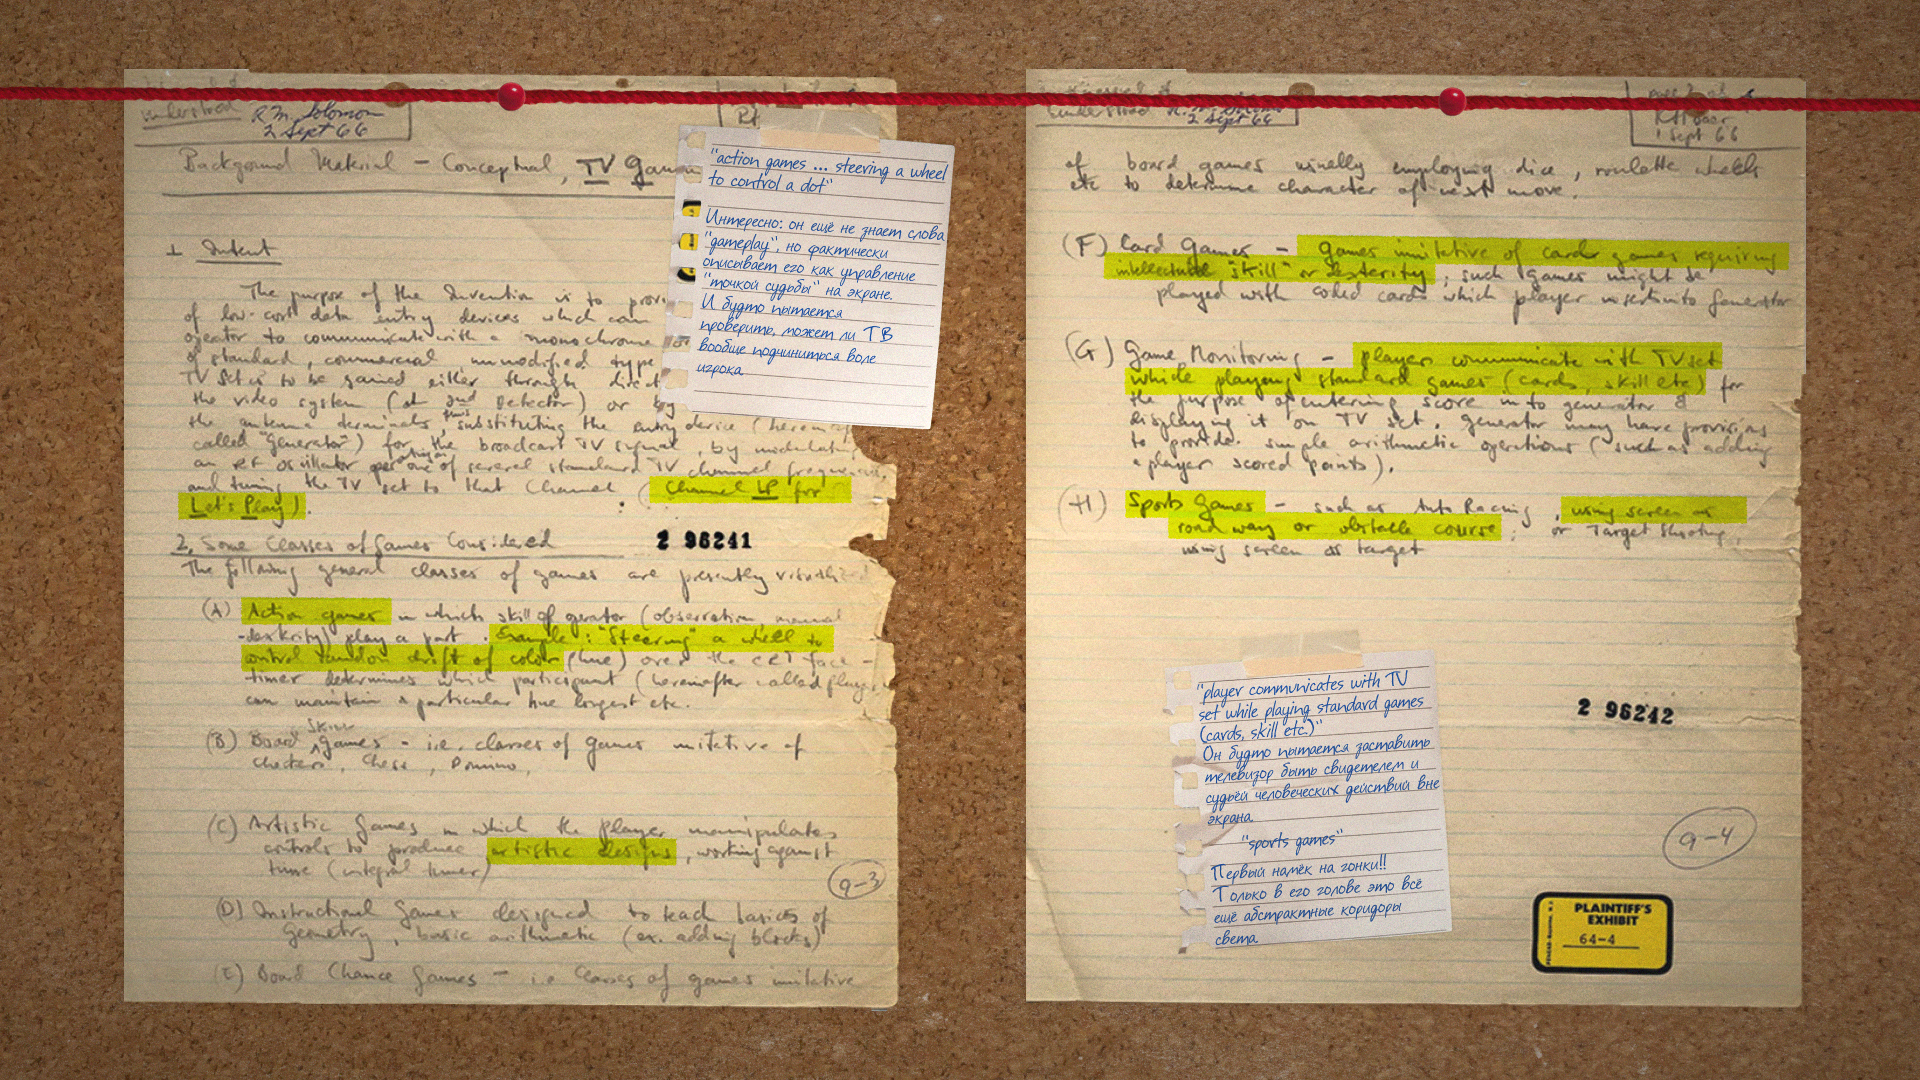 understood
R.M. Solomon
2 Sept 66
Background Material - Conceptual, TV Gam
1 Intent
The purpose of the Invention is to provi
of low-cost data entry devices which can
operator to communicate with a monochrome or
of standard, commercial unmodified type
TV set is to be gained either through direct
the video system (at 2nd Detector) or by
the antenna terminals, thus substituting the entry device (herein
called "Generator") for the broadcast TV signal, by modulating
an RF oscillator operating on one of several standard TV channel frequencies
and tuning the TV set to that Channel (Channel LP for
Let's Play).
2. Some Classes of Games Considered
2 96241
The following general classes of games are presently visualized
(A) Action games in which skill of operator (observation, manual
dexterity) play a part. Example: "Steering" a wheel to
control random drift of color (hue) over the CRT face -
timer determines which participant (hereafter called player
can maintain a particular hue longest etc.
(B) Board Skill games - i.e. classes of games imitative of
checkers, Chess, Domino,
(C) Artistic Games in which the player manipulates
controls to produce artistic designs, working against
time (integral timer)
9-3
(D) Instructional Games designed to teach basics of
Geometry, basic arithmetic (ex. adding blocks)
(E) Board Chance Games - i.e classes of games imitative
"action games ... steering a wheel
to control a dot"
Интересно: он ещё не знает слова
"gameplay", но фактически
описывает его как управление
"точкой судьбы" на экране.
И будто пытается
проверить, может ли ТВ
вообще подчиниться воле
игрока
understood
2 Sept 66
RHBaer
1 Sept 66
of board games usually employing dice, roulette wheels
etc to determine character of next move.
(F) Card Games - games imitative of card games requiring
intellectual "skill" or dexterity, such games might be
played with coded cards which player inserts into Generator
(G) Game Monitoring - player communicate with TV set
while playing standard games (cards, skill etc) for
the purpose of entering score into generator &
displaying it on TV set. Generator may have provisions
to provide simple arithmetic operations (such as adding
a player scored points).
(H) Sports Games - such as Auto Racing, using screen as
road way or obstacle course; or Target Shooting,
using screen as target
2 96242
"player communicates with TV
set while playing standard games
(cards, skill etc.)"
Он будто пытается заставить
телевизор быть свидетелем и
судьёй человеческих действий вне
экрана
"sports games"
Первый намёк на гонки!!
Только в его голове это всё
ещё абстрактные коридоры
света
9-4
PLAINTIFF'S
EXHIBIT
64-4